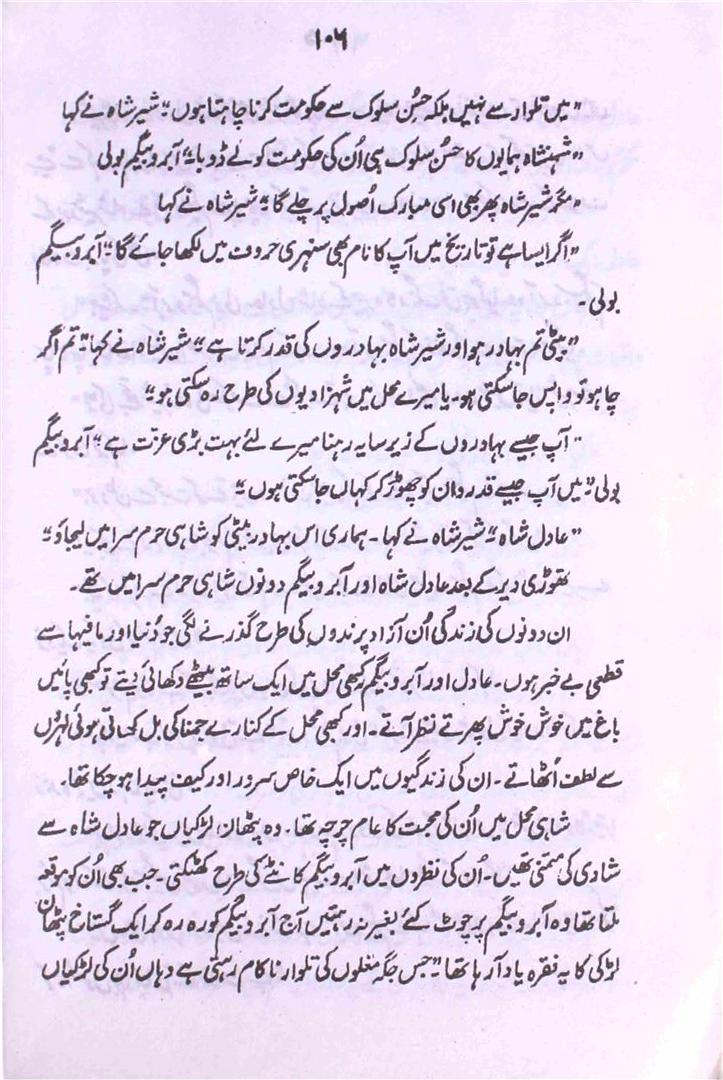 ۱۰۶
"میں تلوار سے نہیں بلکہ حسنِ سلوک سے حکومت کرنا چاہتا ہوں" شیر شاہ نے کہا
"شہنشاہ ہمایوں کا حسنِ سلوک ہی اُن کی حکومت کو لے ڈوبا" آبرو بیگم بولی
"مگر شیر شاہ پھر بھی اسی مبارک اُصول پر چلے گا" شیر شاہ نے کہا
"اگر ایسا ہے تو تاریخ میں آپ کا نام بھی سنہری حروف میں لکھا جائے گا" آبرو بیگم
بولی۔
"بیٹی تم بہادر ہو اور شیر شاہ بہادروں کی قدر کرتا ہے" شیر شاہ نے کہا "تم اگر
چاہو تو واپس جا سکتی ہو۔ یا میرے محل میں شہزادیوں کی طرح رہ سکتی ہو"
"آپ جیسے بہادروں کے زیر سایہ رہنا میرے لئے بہت بڑی عزت ہے" آبرو بیگم
بولی "میں آپ جیسے قدردان کو چھوڑ کر کہاں جا سکتی ہوں"
"عادل شاہ" شیر شاہ نے کہا۔ ہماری اس بہادر بیٹی کو شاہی حرم سرا میں لیجاؤ"
تھوڑی دیر کے بعد عادل شاہ اور آبرو بیگم دونوں شاہی حرم سرا میں تھے۔
ان دونوں کی زندگی اُن آزاد پرندوں کی طرح گذرنے لگی جو دُنیا اور مافیہا سے
قطعی بے خبر ہوں۔ عادل اور آبرو بیگم کبھی محل میں ایک ساتھ بیٹھے دکھائی دیتے تو کبھی پائیں
باغ میں خوش خوش پھرتے نظر آتے۔ اور کبھی محل کے کنارے جمنا کی بل کھاتی ہوئی لہروں
سے لطف اُٹھاتے۔ ان کی زندگیوں میں ایک خاص سرور اور کیف پیدا ہو چکا تھا۔
شاہی محل میں اُن کی محبت کا عام چرچہ تھا۔ وہ پٹھان لڑکیاں جو عادل شاہ سے
شادی کی متمنی تھیں۔ اُن کی نظروں میں آبرو بیگم کانٹے کی طرح کھٹکتی۔ جب بھی اُن کو موقعہ
ملتا تھا وہ آبرو بیگم پر چوٹ کئے بغیر نہ رہتیں آج آبرو بیگم کو رہ رہ کر ایک گستاخ پٹھان
لڑکی کا یہ فقرہ یاد آ رہا تھا "جس جگہ مغلوں کی تلوار ناکام رہتی ہے وہاں اُن کی لڑکیاں